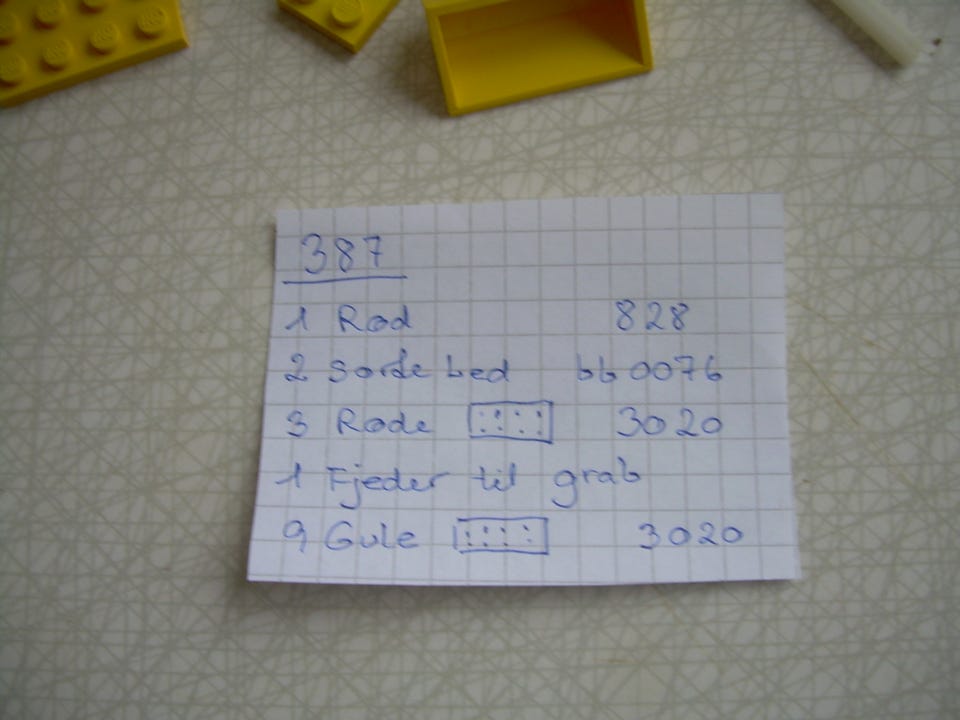 387
1 Rød 828
2 sorde bed bb0076
3 Røde 3020
1 Fjeder til grab
9 Gule 3020